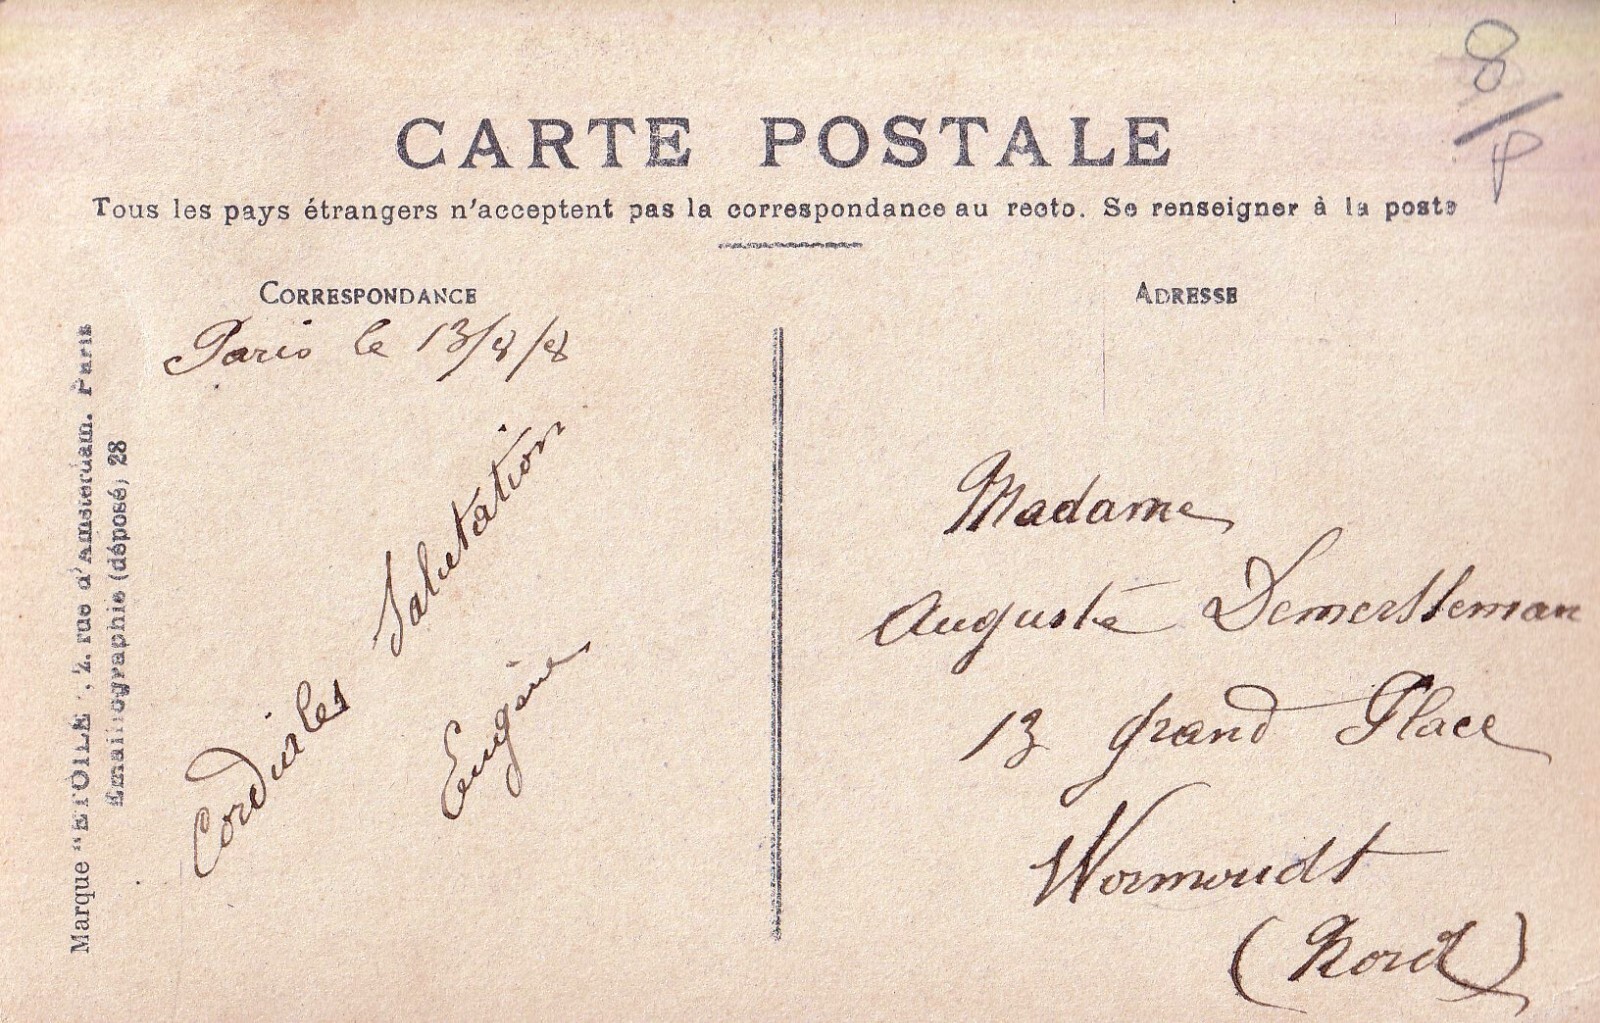 8/P
CARTE POSTALE
Tous les pays étrangers n'acceptent pas la correspondance au recto. Se renseigner à la poste
CORRESPONDANCE
Paris le 13/8/8
Cordiales Salutation
Eugène
ADRESSE
Madame
Auguste Demersseman
13 Grand Place
Wormoudt
(Nord)
Marque "ETOILE", 2, rue d'Amsterdam. Paris
Emailographie (déposé) 28